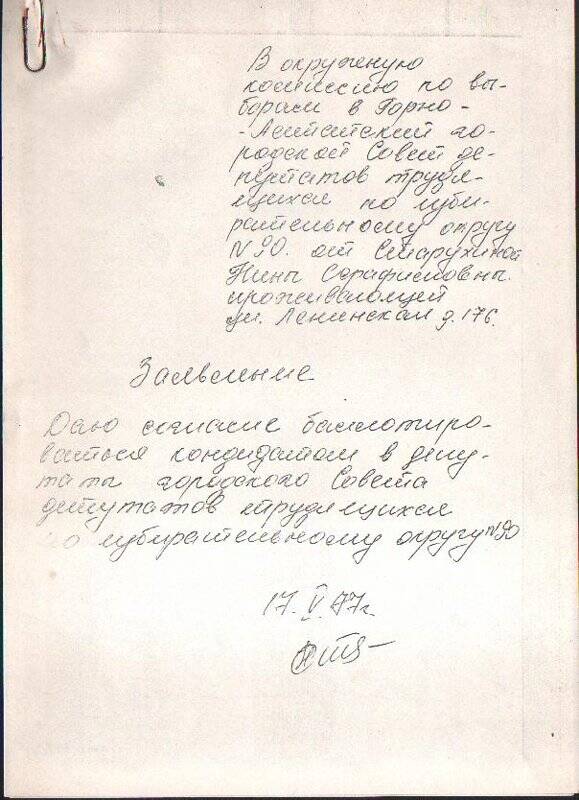 В окружную
комиссию по вы-
борам в Горно-
-Алтайский го-
родской Совет де-
путатов трудя-
щихся по изби-
рательному округу
N 90. от Старухиной
Нины Серафимовны.
проживающей
ул. Ленинская д. 176.
Заявление
Даю согласие баллотиро-
ваться кандидатом в депу-
таты городского Совета
депутатов трудящихся
по избирательному округу N 90
17. V. 77г.